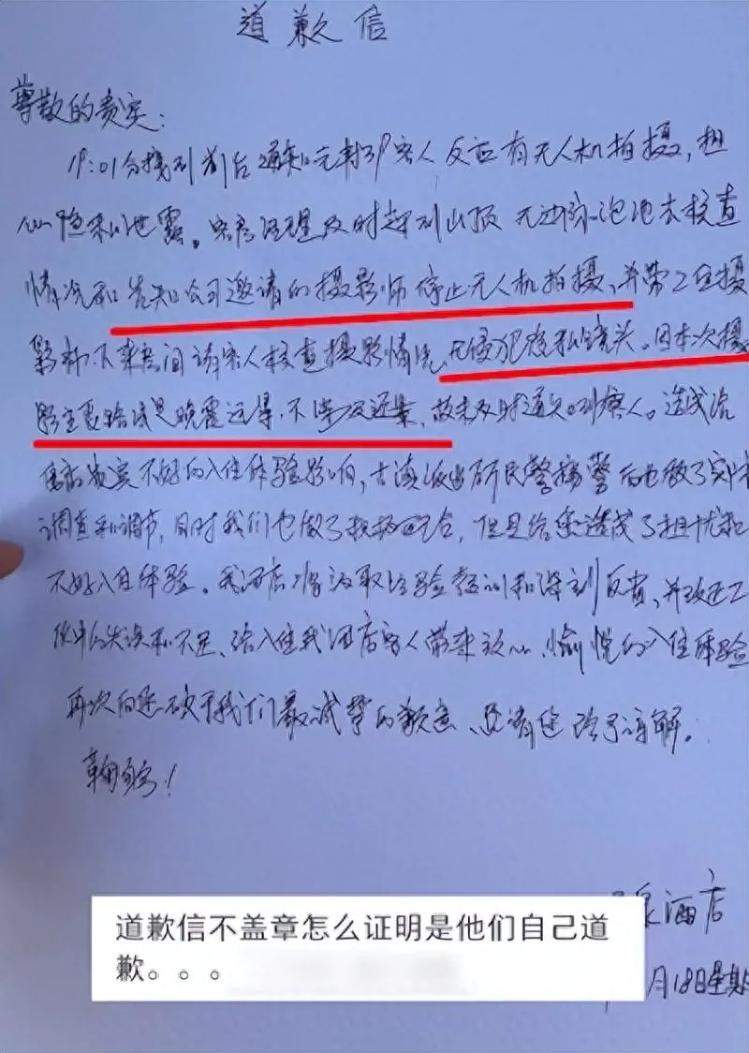 道歉信
尊敬的贵宾：
19:01分接到前台通知元寿沪客人反应有无人机拍摄，担
心隐私泄露。客房经理及时赶到山顶无边泳泡池去核查
情况和告知公司邀请的摄影师停止无人机拍摄、并带2位摄
影师下来房间请客人核查摄影情况，无侵犯隐私镜头。因本次摄
影主要路线是晚霞远景，不涉及近景，故未及时通知到客人。造成给
贵宾不好的入住体验影响，古滇派出所民警接警后也做了实际
调查和调节，同时我们也做了积极配合，但是给您造成了担忧和
不好入住体验。我酒店将汲取经验教训和深刻反省、并改进工
作中的失误和不足、给入住我酒店客人带来放心、愉悦的入住体验
再次向您致于我们最诚挚的歉意、还请您给予谅解。
泉酒店
月18日星期
道歉信不盖章怎么证明是他们自己道
歉。。。